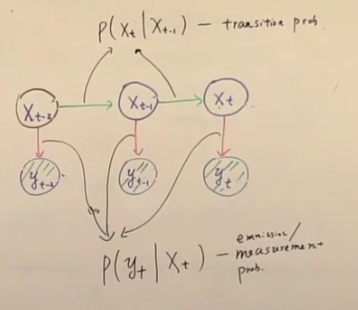 P(Xt | Xt-1) — transition prob.
Xt-2 Xt-1 Xt
yt-2 yt-1 yt
P(yt | Xt) — emmission/
measurement
prob.